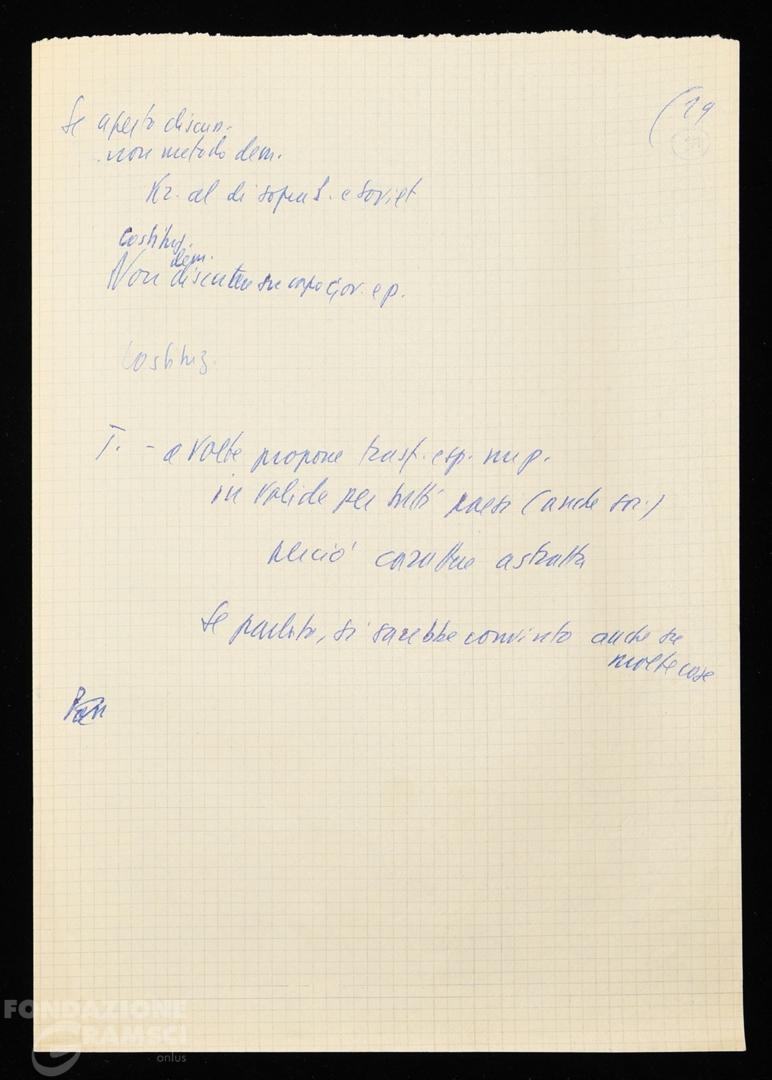 (19
Se aperto discus.
non metodo dem.
Kr. al di sopra S. e Soviet
Costituz.
dem.
Non discutere su capo gov. e p.
Costituz.
T. - a volte propone trasf. esp. mp.
in valide per tutti paesi (anche soc.)
perciò carattere astratto
Se parlato, si sarebbe convinto anche su
molte cose
FONDAZIONE
GRAMSCI
onlus